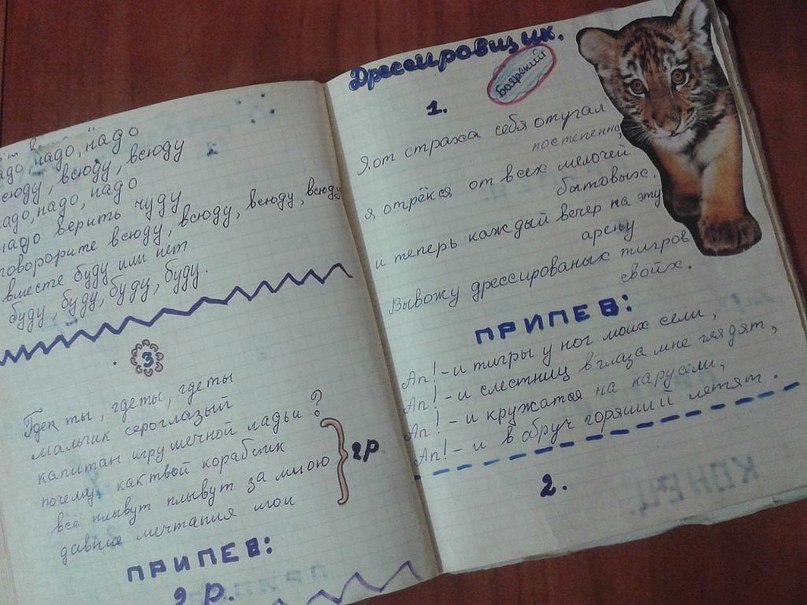 надо, надо
всюду, всюду, всюду
надо, надо, надо
надо верить чуду
говорорите всюду, всюду, всюду, всюду
вместе буду или нет
буду, буду, буду, буду.
3
Где ты, где ты, где ты
мальчик сероглазый
капитан игрушечной ладьи ?
почему, как твой кораблик
всё плывут плывут за мною
давние мечтания мои
2р
ПРИПЕВ:
2 р.
Дрессировщик.
Боярский
1.
Я, от страха себя отугал
постепенно,
я отрёкся от всех мелочей
бытовых.
и теперь каждый вечер на эту
арену
Вывожу дрессированых тигров
свойх.
ПРИПЕВ:
Ап! - и тигры у ног моих сели,
Ап! - и с лестниц в глаза мне глядят,
Ап! - и кружатся на карусели,
Ап! - и в обруч горящий летят.
2.